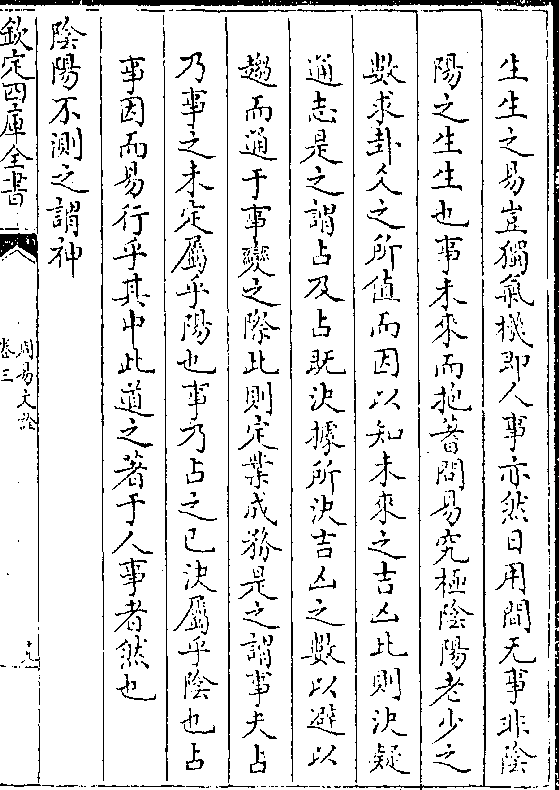 生生之易豈獨氣機即人事亦然日用間无事非陰
陽之生生也事未來而抱蓍問易究極陰陽老少之
數求卦爻之所值而因以知未來之吉凶此則決疑
通志是之謂占及占既決據所決吉凶之數以避以
趨而通于事變之際此則定業成務是之謂事夫占
乃事之未定屬乎陽也事乃占之已決屬乎陰也占
事因而易行乎其中此道之著于人事者然也
陰陽不測之謂神
欽定四庫全書
周易文詮
卷三
十九